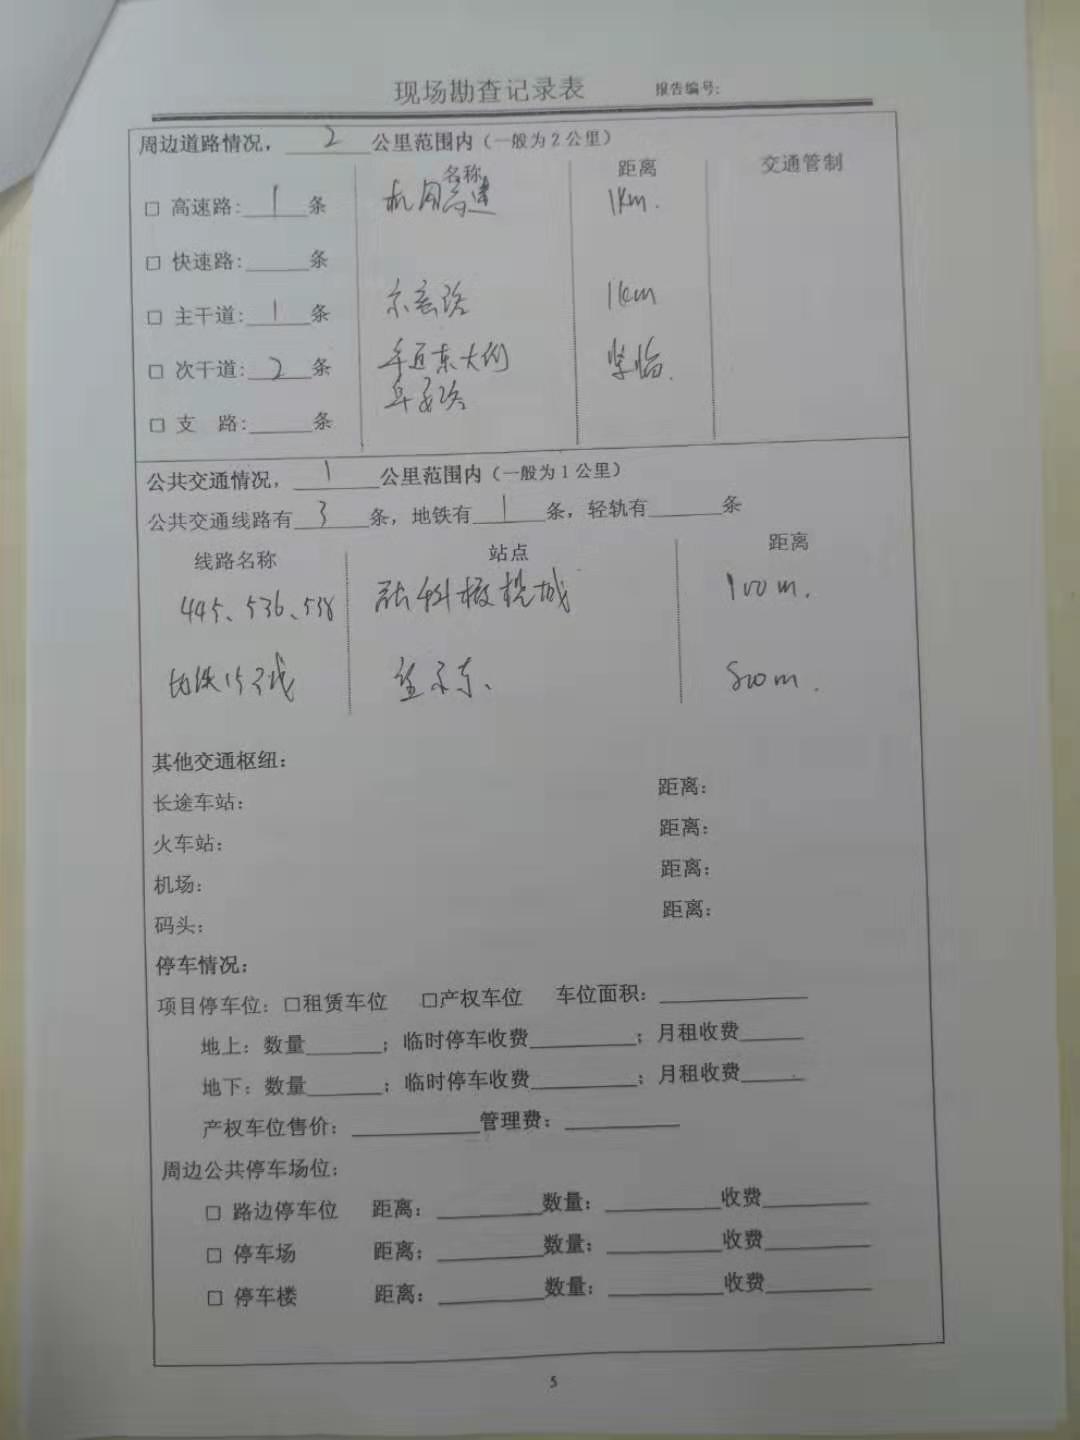 现场勘查记录表 报告编号:
周边道路情况，2公里范围内（一般为2公里）
名称 距离 交通管制
□ 高速路:1条 机场高速 1km.
□ 快速路:____条
□ 主干道:1条 京密路 1km
□ 次干道:2条 阜通东大街 紧临.
阜安路
□ 支 路:____条
公共交通情况，1公里范围内（一般为1公里）
公共交通线路有3条，地铁有1条，轻轨有____条
线路名称 站点 距离
445、536、538 融科橄榄城 100m.
地铁15号线 望京东、 800m.
其他交通枢纽：
长途车站： 距离：
火车站： 距离：
机场： 距离：
码头： 距离：
停车情况：
项目停车位：□租赁车位 □产权车位 车位面积：____
地上：数量____；临时停车收费____；月租收费____
地下：数量____；临时停车收费____；月租收费____
产权车位售价：____管理费：____
周边公共停车场位：
□ 路边停车位 距离：____数量：____收费____
□ 停车场 距离：____数量：____收费____
□ 停车楼 距离：____数量：____收费____
5